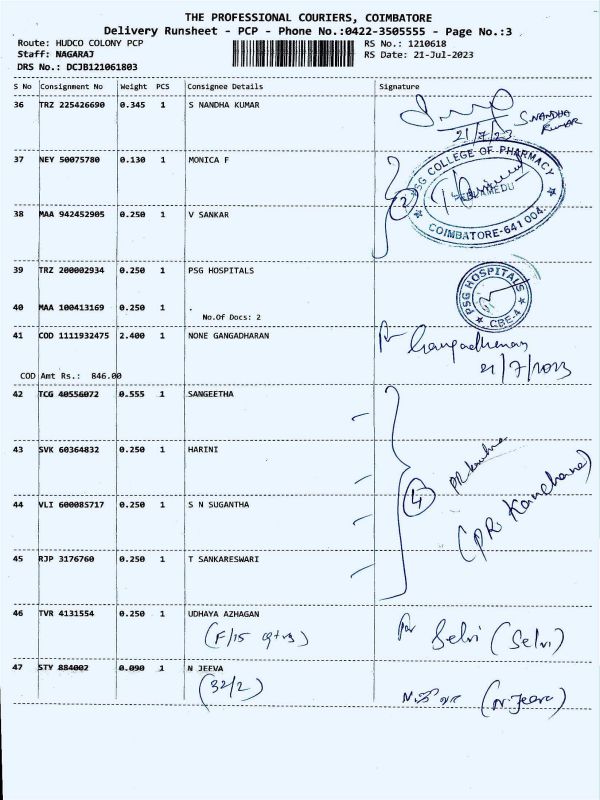 THE PROFESSIONAL COURIERS, COIMBATORE
Delivery Runsheet - PCP - Phone No.:0422-3505555 - Page No.:3
Route: HUDCO COLONY PCP RS No.: 1210618
Staff: NAGARAJ RS Date: 21-Jul-2023
DRS No.: DCJB121061803
S No Consignment No Weight PCS Consignee Details Signature
36 TRZ 225426690 0.345 1 S NANDHA KUMAR
S.NANDHA
KUMAR
21/7/23
37 NEY 50075780 0.130 1 MONICA F
PSG COLLEGE OF PHARMACY
2
PEELAMEDU
COIMBATORE-641 004.
38 MAA 942452905 0.250 1 V SANKAR
39 TRZ 200002934 0.250 1 PSG HOSPITALS
PSG HOSPITALS
CBE-4
40 MAA 100413169 0.250 1 .
No.Of Docs: 2
41 COD 1111932475 2.400 1 NONE GANGADHARAN
Gangadharan
21/7/2023
COD Amt Rs.: 846.00
42 TCG 40556072 0.555 1 SANGEETHA
43 SVK 60364832 0.250 1 HARINI
4
44 VLI 600085717 0.250 1 S N SUGANTHA
(PR. Kanchana)
45 RJP 3176760 0.250 1 T SANKARESWARI
46 TVR 4131554 0.250 1 UDHAYA AZHAGAN
(F/15 qtrs) for Selvi (Selvi)
47 STY 884002 0.090 1 N JEEVA
(32/2) (N.Jeeva)